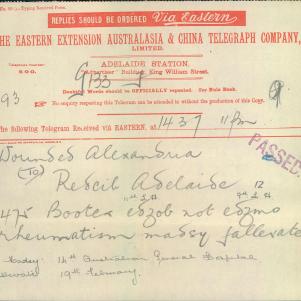 REPLIES SHOULD BE ORDERED Via Eastern
THE EASTERN EXTENSION AUSTRALASIA & CHINA TELEGRAPH COMPANY,
LIMITED.
ADELAIDE STATION,
"Advertiser" Building, King William Street.
Doubtful Words should be OFFICIALLY repeated. See Rule Book.
No enquiry respecting this Telegram can be attended to without the production of this Copy.
93
The following Telegram Received via EASTERN, at 1437 11pm
PASSED
Wounded Alexandria
(To)
Redcib Adelaide 12
475 Booter edzob not edzmo
rheumatism massy fallevate
14th Australian General Hospital
19th